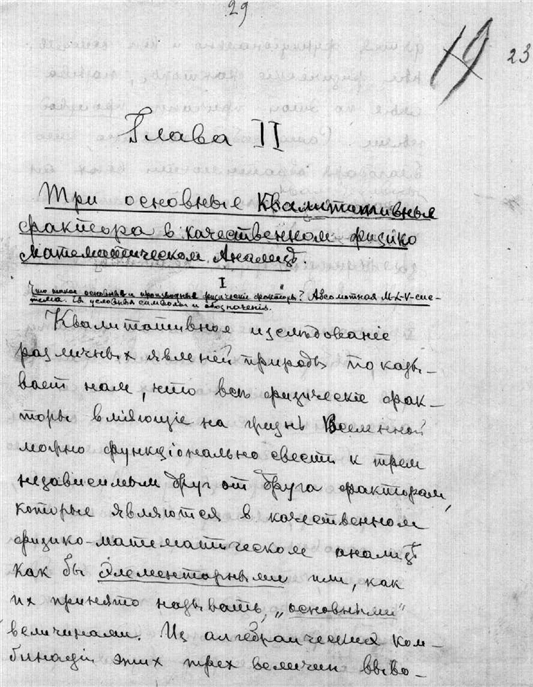 29
19 23
Глава II
Три основные Квалитативные
фактора в качественном физико
математическом Анализѣ.
I
Что такое основные и производные физические факторы? Абсолютная M-L-V-сис-
тема. Её условия символы и обозначения.
Квалитативное изслѣдованіе
различных явленій природы показы-
вает нам, что всѣ физическіе фак-
торы вліяющіе на жизнь Вселенной
можно функціонально свести к трем
независимым друг от друга факторам,
которые являются в качественном
физико-математическом анализѣ
как бы Элементарными или, как
их принято называть, „основными"
величинами. Из алгебраических ком-
бинацій этих трех величин выво-